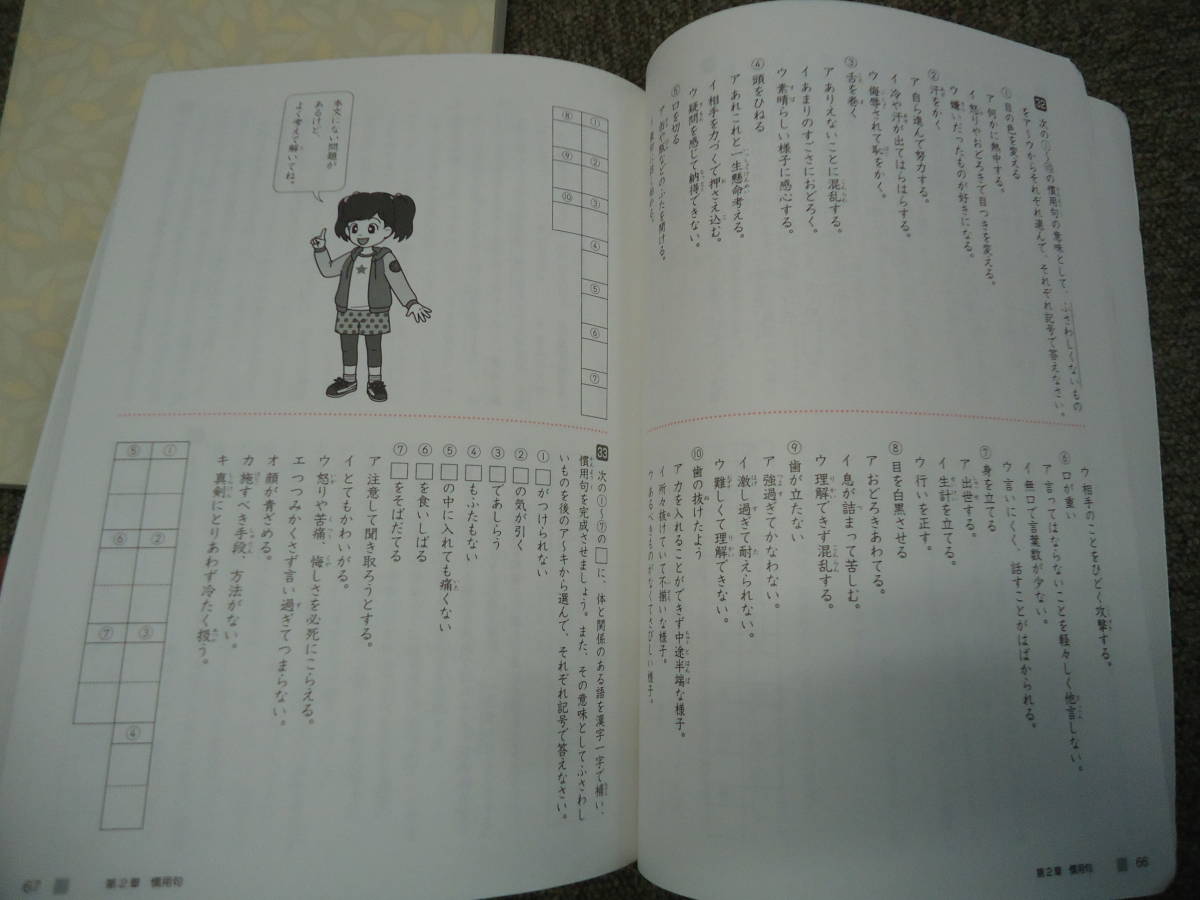 32 次の①〜⑩の慣用句の意味として、ふさわしくないもの
をア〜ウからそれぞれ選んで、それぞれ記号で答えなさい。
①目の色を変える
ア 何かに熱中する。
イ 怒りやおどろきで目つきを変える。
ウ 嫌いだったものが好きになる。
②汗をかく
ア 自ら進んで努力する。
イ 冷や汗が出てはらはらする。
ウ 侮辱されて恥をかく。
③舌を巻く
ア ありえないことに混乱する。
イ あまりのすごさにおどろく。
ウ 素晴らしい様子に感心する。
④頭をひねる
ア あれこれと一生懸命考える。
イ 相手を力づくで押さえ込む。
ウ 疑問を感じて納得できない。
⑤口を切る
ウ 相手のことをひどく攻撃する。
⑥口が重い
ア 言ってはならないことを軽々しく他言しない。
イ 無口で言葉数が少ない。
ウ 言いにくく、話すことがはばかられる。
⑦身を立てる
ア 出世する。
イ 生計を立てる。
ウ 行いを正す。
⑧目を白黒させる
ア おどろきあわてる。
イ 息が詰まって苦しむ。
ウ 理解できず混乱する。
⑨歯が立たない
ア 強過ぎてかなわない。
イ 激し過ぎて耐えられない。
ウ 難しくて理解できない。
⑩歯の抜けたよう
ア 力を入れることができず中途半端な様子。
イ 所々抜けていて不揃いな様子。
ウ あるべきものがなくてさびしい様子。
第2章 慣用句 66
① ② ③ ④ ⑤ ⑥ ⑦
⑧ ⑨ ⑩
本文にない問題が
あるけど、
よく考えて解いてね。
33 次の①〜⑦の□に、体と関係のある語を漢字一字で補い、
慣用句を完成させましょう。また、その意味としてふさわし
いものを後のア〜キから選んで、それぞれ記号で答えなさい。
①□がつけられない
②□の気が引く
③□であしらう
④□もふたもない
⑤□の中に入れても痛くない
⑥□を食いしばる
⑦□をそばだてる
ア 注意して聞き取ろうとする。
イ とてもかわいがる。
ウ 怒りや苦痛、悔しさを必死にこらえる。
エ つつみかくさず言い過ぎてつまらない。
オ 顔が青ざめる。
カ 施すべき手段、方法がない。
キ 真剣にとりあわず冷たく扱う。
① ② ③ ④
⑤ ⑥ ⑦
67 第2章 慣用句